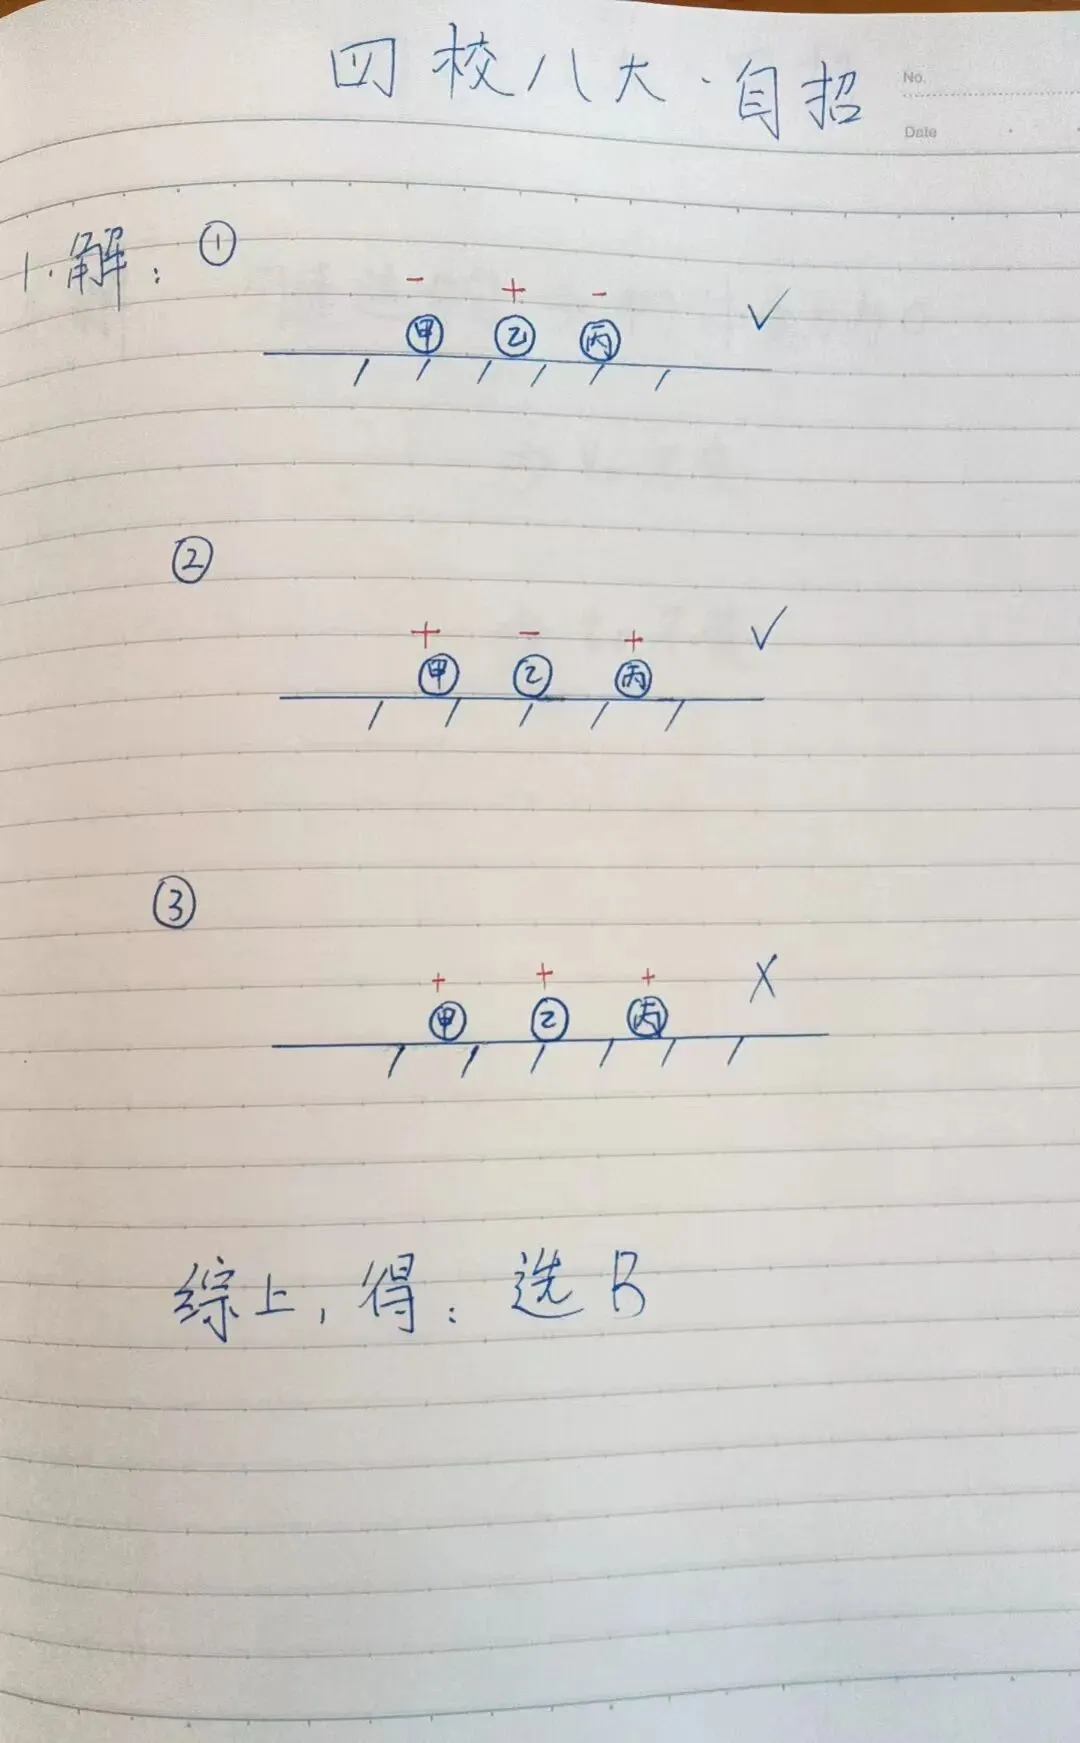 四校八大·自招
No.
Date
1.解：①
- + -
甲 乙 丙 ✓
②
+ - +
甲 乙 丙 ✓
③
+ + +
甲 乙 丙 ×
综上，得：选B